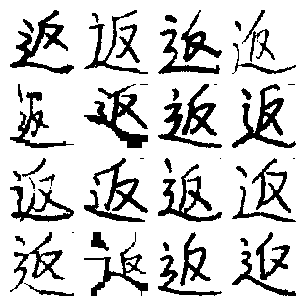 返返返返
返返返返
返返返返
返返返返